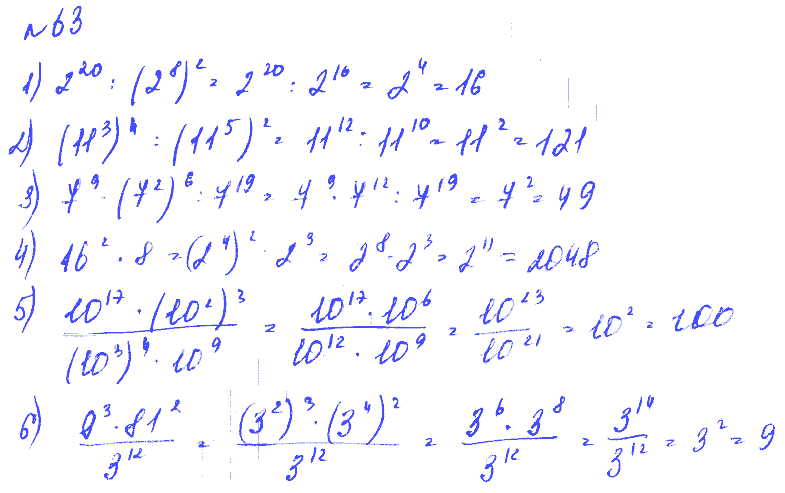 № 63
1) 2²⁰ : (2⁸)² = 2²⁰ : 2¹⁶ = 2⁴ = 16
2) (11³)⁴ : (11⁵)² = 11¹² : 11¹⁰ = 11² = 121
3) 7⁹ · (7²)⁶ : 7¹⁹ = 7⁹ · 7¹² : 7¹⁹ = 7² = 49
4) 16² · 8 = (2⁴)² · 2³ = 2⁸ · 2³ = 2¹¹ = 2048
5) (10¹⁷ · (10²)³) / ((10³)⁴ · 10⁹) = (10¹⁷ · 10⁶) / (10¹² · 10⁹) = 10²³ / 10²¹ = 10² = 100
6) (9³ · 81²) / 3¹² = ((3²)³ · (3⁴)²) / 3¹² = (3⁶ · 3⁸) / 3¹² = 3¹⁴ / 3¹² = 3² = 9